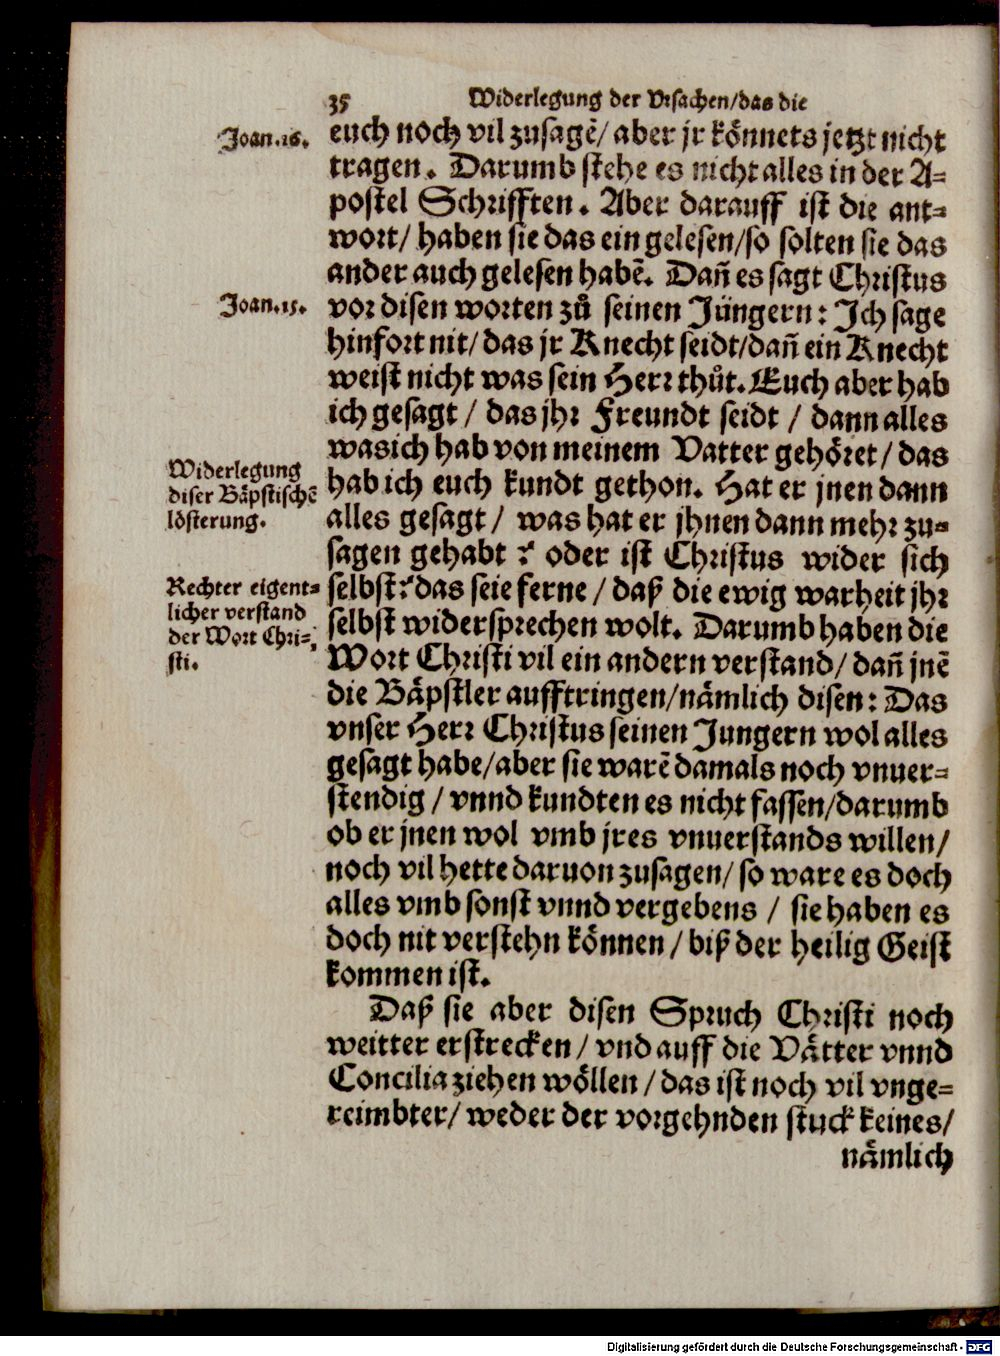 35 Widerlegung der Vrsachen/das die
Joan.16.
euch noch vil zusagẽ/ aber jr koͤnnets jetzt nicht
tragen. Darumb stehe es nicht alles in der A⸗
postel Schrifften. Aber darauff ist die ant⸗
wort/ haben sie das ein gelesen/so solten sie das
ander auch gelesen habẽ. Dañ es sagt Christus
Joan.15.
vor disen worten zuͦ seinen Jüngern: Ich sage
hinfort nit/ das jr Knecht seidt/dañ ein Knecht
weist nicht was sein Herr thuͦt. Euch aber hab
ich gesagt / das jhr Freundt seidt / dann alles
was ich hab von meinem Vatter gehoͤret/ das
Widerlegung
diser Baͤpstischẽ
loͤsterung.
hab ich euch kundt gethon. Hat er jnen dann
alles gesagt/ was hat er jhnen dann mehr zu⸗
sagen gehabt ? oder ist Christus wider sich
Rechter eigent⸗
licher verstand
der Wort Chri⸗
sti.
selbst? das seie ferne / daß die ewig warheit jhr
selbst widersprechen wolt. Darumb haben die
Wort Christi vil ein andern verstand/ dañ jnẽ
die Baͤpstler aufftringen/naͤmlich disen: Das
vnser Herr Christus seinen Jungern wol alles
gesagt habe/aber sie warẽ damals noch vnuer⸗
stendig / vnnd kundten es nicht fassen/darumb
ob er jnen wol vmb jres vnuerstands willen/
noch vil hette daruon zusagen/ so ware es doch
alles vmb sonst vnnd vergebens / sie haben es
doch nit verstehn koͤnnen / biß der heilig Geist
kommen ist.
Daß sie aber disen Spruch Christi noch
weitter erstrecken / vnd auff die Vaͤtter vnnd
Concilia ziehen woͤllen / das ist noch vil vnge⸗
reimbter/ weder der vorgehnden stuck keines/
naͤmlich
Digitalisierung gefördert durch die Deutsche Forschungsgemeinschaft - DFG